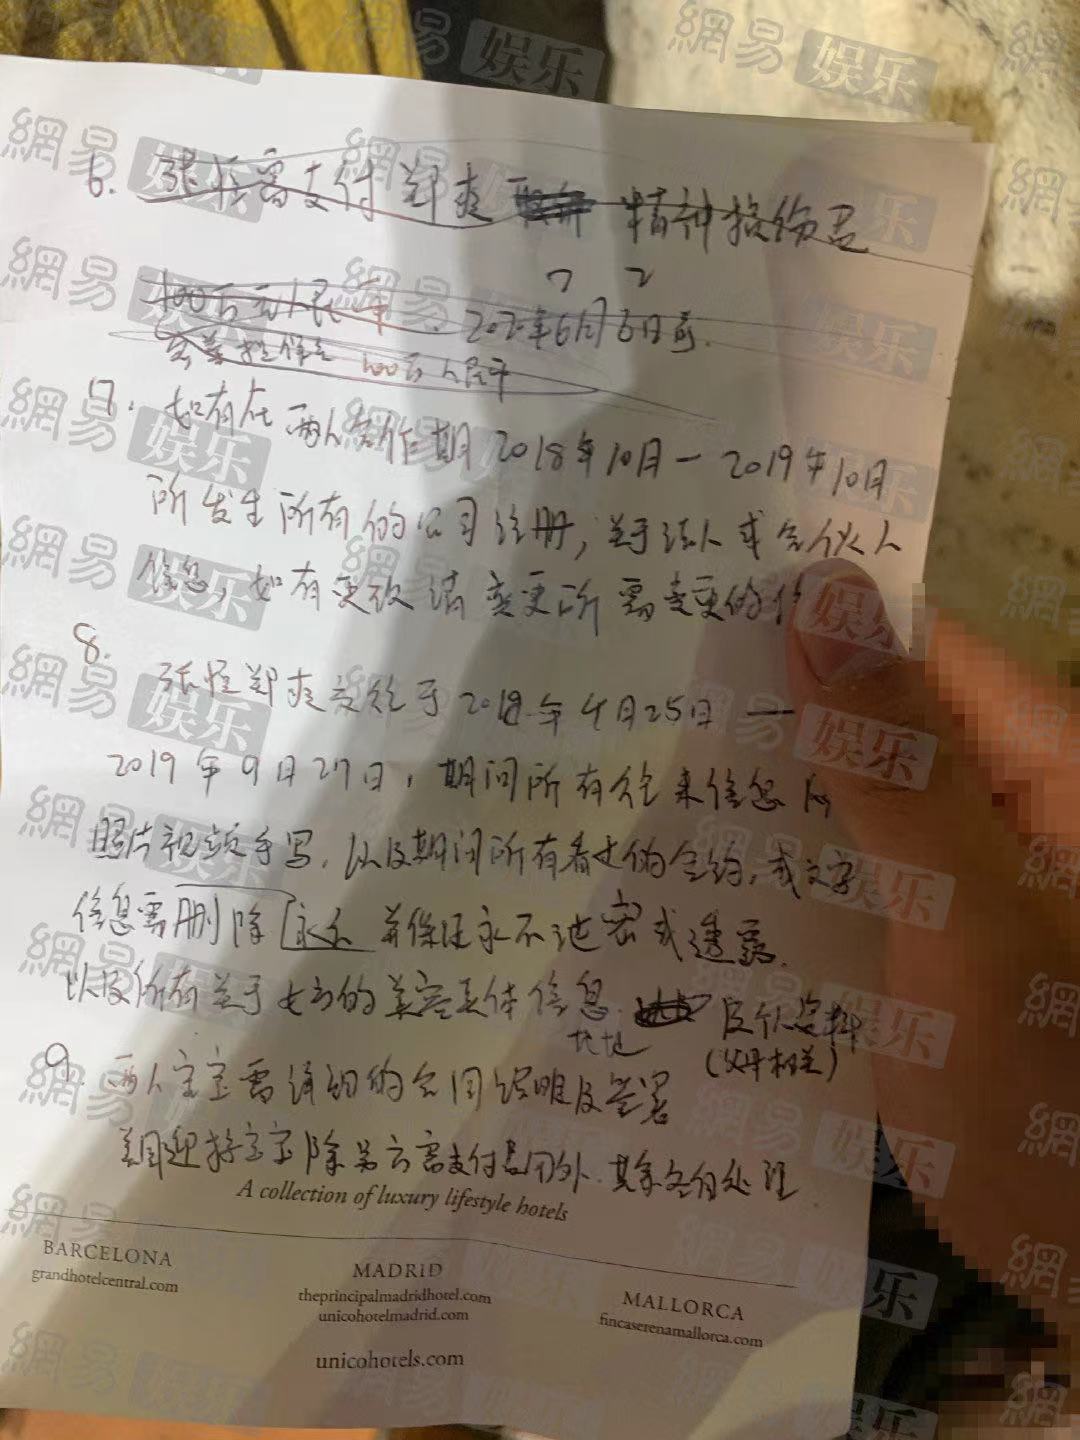 6. 张恒需支付郑爽 精神损伤
7 2
100万元人民币. 202 年6月 日前.
100万人民币
7. 如有在两人合作期2018年10月—2019年10月
所发生所有的公司注册,关于法人或合伙人
信息,如有更改请变更所需变更的
8.
张恒郑爽交往于2018年4月25日—
2019年9月27日,期间所有往来信息
照片视频手写,以及期间所有看过的合约,或文字
信息需删除[永久]并保证永不泄密或透露.
以及所有关于女方的美容美体信息.
地址
及个人资料
(父母相关)
9. 两人宝宝需详细的合同说明及签署
美国迎接宝宝除男方需支付费用外.其余各自处理
A collection of luxury lifestyle hotels
BARCELONA
grandhotelcentral.com
MADRID
theprincipalmadridhotel.com
unicohotelmadrid.com
MALLORCA
fincaserenamallorca.com
unicohotels.com
網易娱乐